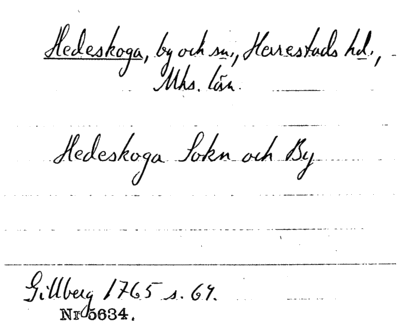 Hedeskoga, by och sn., Herrestads hd.,
Mhs. län.
Hedeskoga Sokn och By
Gillberg 1765 s. 64.
Nr 5634.